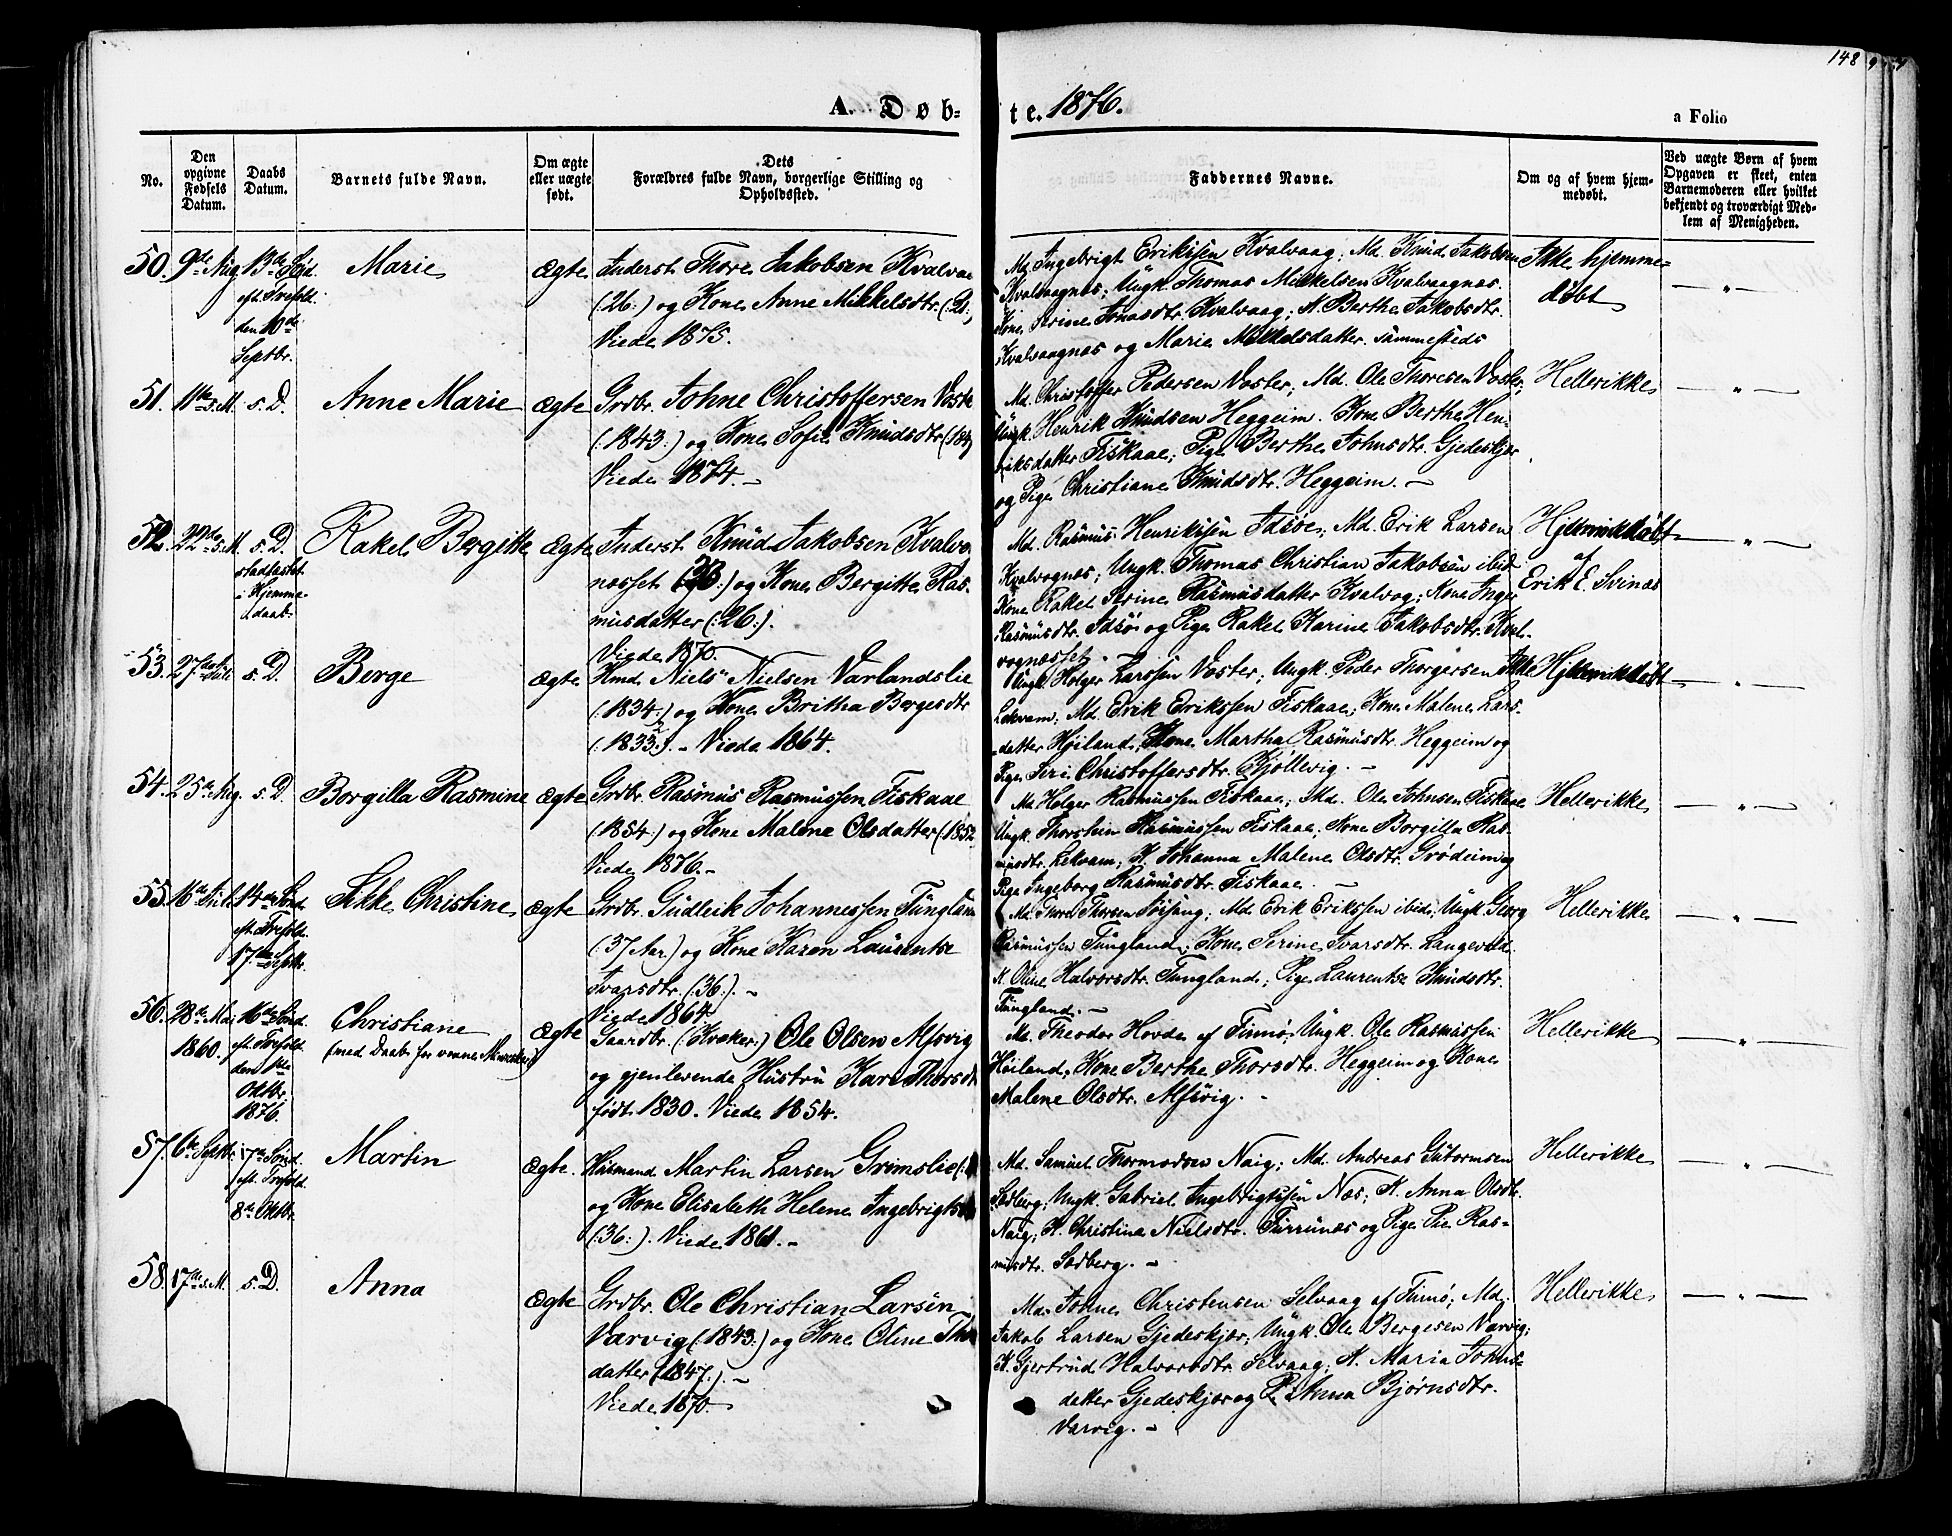 148
A. Døb-
te. 1876.
a Folio
No.
Den opgivne Fødsels Datum.
Daabs Datum.
Barnets fulde Navn.
Om ægte eller uægte født.
Dets Forældres fulde Navn, borgerlige Stilling og Opholdssted.
Faddernes Navne.
Om og af hvem hjemmedøbt.
Ved uægte Børn af hvem Opgaven er skeet, enten Barnemoderen eller hvilket bekjendt og troværdigt Medlem af Menigheden.
50. 9de Aug 13de Sønd. eft. Trefold. den 10de Septbr. Marie Ægte
Inderst Thore Jakobsen Kvalvaa
(:26:) og Kone Anne Mikkelsdtr. (:21:)
Viede 1875.
Md. Ingebrigt Eriksen Kvalvaag; Md. Knud Jakobsen
Kvalvaagnæs; Ungk. Thomas Mikkelsen Kvalvaagnæs.
Kone Serine Jonasdtr. Kvalvaag; K. Berthe Jakobsdtr.
Kvalvaagnæs og Marie Mikkelsdatter sammesteds
Ikke hjemme-
døbt
— " —
51. 11te s. M. s. D. Anne Marie Ægte
Grdbr. Johne Christoffersen Voste
(:1843:) og Kone Sofie Knudsdtr (:184
Viede 1874. —
Md. Christoffer Pedersen Voster; Md. Ole Thoresen Voster;
Ungk. Henrik Knudsen Heggeim. Kone Berthe Hen-
riksdatter Fiskaae; Pige Berthe Johnsdtr. Gjedeskjær
og Pige Christiane Knudsdtr. Heggeim. —
Hellerikke
— " —
52. 22de s. M. s. D. stadfæstet i Hjemme-daab Rakel Bergitte Ægte
Inderst Knud Jakobsen Kvalvo
næsset (:26:) og Kone Bergitte Ras-
musdatter (:26:).
Viede 1870.
Md. Rasmus Henriksen Idsøe; Md. Erik Larsen
Kvalvognæs; Ungk. Thomas Christian Jakobsen ibid.
Kone Rakel Serine Rasmusdatter Kvalvog; Kone Inger
Rasmusdtr. Idsø og Pige Rakel Karine Jakobsdtr. Kval-
vognæsset.
Hjemmedøbt
af
Erik E. Svinæs
— " —
53. 27de Juli s. D. Børge Ægte
Hmd. Niels Nielsen Varlandslie
(:1834:) og Kone Britha Børgesdtr
(:1833:). – Viede 1864.
Ungk. Holger Larssen Voster; Ungk. Peder Thorgersen
Lekvam; Md. Erik Erikssen Fiskaae; Kone Malene Lars-
datter Høiland; Kone Martha Rasmusdtr. Heggeim og
Pige Seri Christoffersdtr. Kjøllevig. —
Ikke Hjemmedøbt
— " —
54. 25de Aug. s. D. Borgilla Rasmine Ægte
Grdbr. Rasmus Rasmussen Fiskaae
(:1854:) og Kone Malene Olsdatter (:1852
Viede 1876. —
Md. Holger Rasmussen Fiskaae; Md. Ole Johnsen Fiskaae
Ungk. Thorstein Rasmussen Fiskaae; Kone Borgilla Ras-
musdtr. Lekvam; K. Johanna Malene Olsdtr. Grødeim og
Pige Ingeborg Rasmusdtr. Fiskaae. —
Hellerikke
— " —
55. 16de Juli 14de Sønd. eft. Trefold. 17de Septbr. Christine Ægte
Grdbr. Gudleik Johannessen Tungland
(37 Aar) og Kone Karen Laurentse
Ivarsdtr. (:36:). —
Viede 1864.
Md. Thore Thorsen ; Md. Erik Erikssen ibid; Ungk. Georg
Rasmussen Tungland; Kone Serine Ivarsdtr. Langeveld.
K. Oline Halvorsdtr. Tungland; Pige Laurentse Knudsdtr.
Tungland. —
Hellerikke
— " —
56. 28de Mai 1860. 16de Sønd. eft. Trefold. den 1ste Oktbr. 1876. Christiane Ægte
(med Daab for venne)
Gaardbr. (:Kvæker:) Ole Olsen Alsvig
og gjenlevende Hustru Kari Thorsdt
født 1830. Viede 1854.
Md. Theodor Hovda af Finnø; Ungk. Ole Rasmussen
Høiland; Kone Berthe Thorsdtr. Heggeim og Kone
Malene Olsdtr. Alsvig. —
Hellerikke
— " —
57. 6te Septbr. 17de Sønd. eft. Trefold. 8de Oktbr. Martin Ægte.
Husmand Martin Larsen Grimslie
og Kone Elisabeth Helene Ingebrigts
(:36:). Viede 1861. —
Md. Samuel Thormodsen Naig; Md. Andreas Guttormsen
Sedberg; Ungk. Gabriel Ingebrigtsen Næs; K. Anna Olsdtr.
Naig; K. Christina Nielsdtr. Furrunæs og Pige Pie Ras-
musdtr. Sedberg. —
Hellerikke
— " —
58. 17de s. M. s. D. Anna Ægte
Grdbr. Ole Christian Larsen
Varvig (:1843:) og Kone Oline Thor
datter (:1847:). —
Viede 1870.
Md. Johne Christensen Selvaag af Finnø; Md.
Jakob Larsen Gjedeskjær; Ungk. Ole Bergesen Varvig;
K. Gjertrud Halvorsdtr. Selvaag; K. Maria Johns-
datter Gjedeskjær og P. Anna Bjørnsdtr.
Varvig. —
Hellerikke
— " —